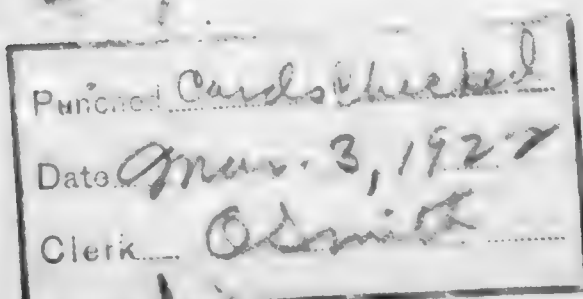 Punched Cards Checked
Date Mar. 3, 1922
Clerk O Smith